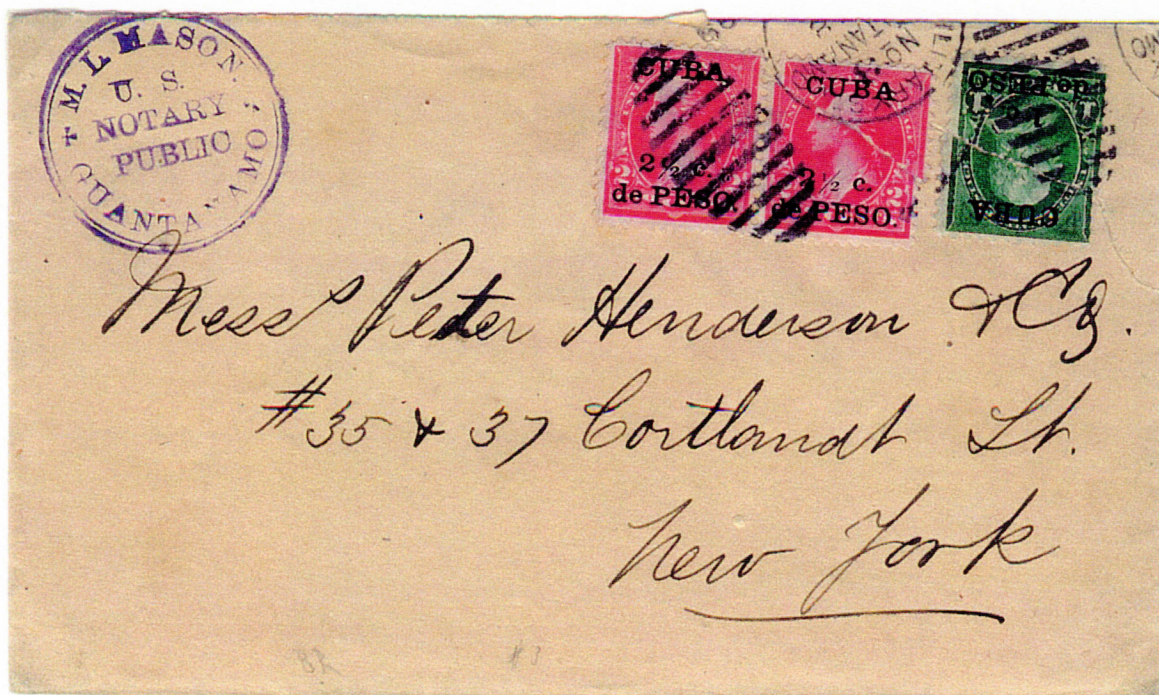 M. L. MASON.
U. S.
NOTARY
PUBLIC
GUANTANAMO
CUBA
2 ½ c.
de PESO.
CUBA
2 ½ c.
de PESO.
CUBA
de PESO
NO
Mess Peter Henderson & Co.
#35 & 37 Cortlandt St.
New York
#3